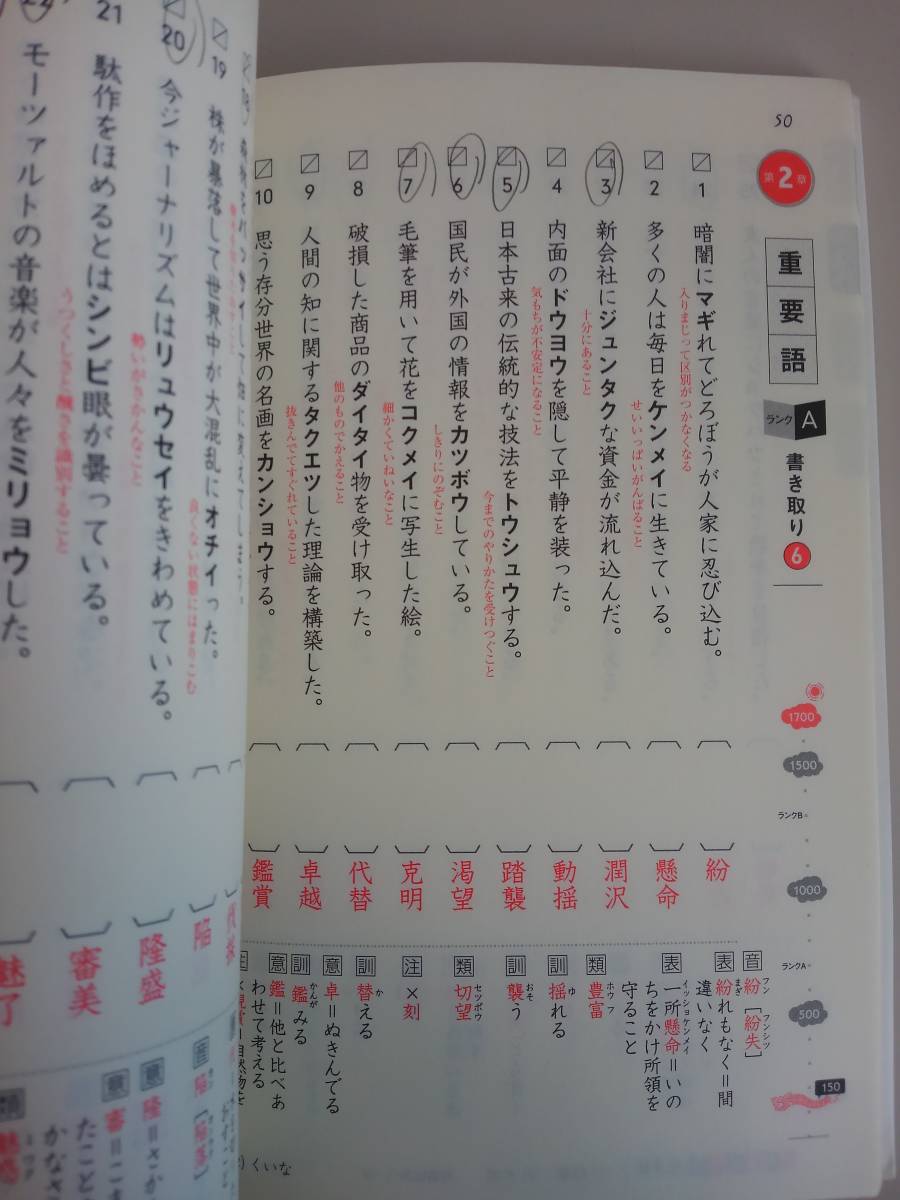 50
第2章
重要語
ランク A
書き取り 6
1 暗闇にマギれてどろぼうが人家に忍び込む。
入りまじって区別がつかなくなる
紛
音 紛 フン [紛失 フンシツ]
表 紛れもなく=間違いなく
2 多くの人は毎日をケンメイに生きている。
せいいっぱいがんばること
懸命
表 一所懸命 イッショケンメイ =いのちをかけ所領を守ること
3 新会社にジュンタクな資金が流れ込んだ。
十分にあること
潤沢
類 豊富 ホウフ
4 内面のドウヨウを隠して平静を装った。
気もちが不安定になること
動揺
訓 揺れる
5 日本古来の伝統的な技法をトウシュウする。
今までのやりかたを受けつぐこと
踏襲
訓 襲う
6 国民が外国の情報をカツボウしている。
しきりにのぞむこと
渇望
類 切望 セツボウ
7 毛筆を用いて花をコクメイに写生した絵。
細かくていねいなこと
克明
注 ×刻
8 破損した商品のダイタイ物を受け取った。
他のものでかえること
代替
訓 替える
9 人間の知に関するタクエツした理論を構築した。
抜きんでてすぐれていること
卓越
意 卓=ぬきんでる
10 思う存分世界の名画をカンショウする。
鑑賞
訓 鑑みる
意 鑑=他と比べあわせて考える
1700
1500
ランクB
1000
ランクA
500
150
19 株が暴落して世界中が大混乱にオチイった。
良くない状態にはまりこむ
陥
20 今ジャーナリズムはリュウセイをきわめている。
勢いがさかんなこと
隆盛
21 駄作をほめるとはシンビ眼が曇っている。
うつくしさと醜さを識別すること
審美
22 モーツァルトの音楽が人々をミリョウした。
魅了
くいな